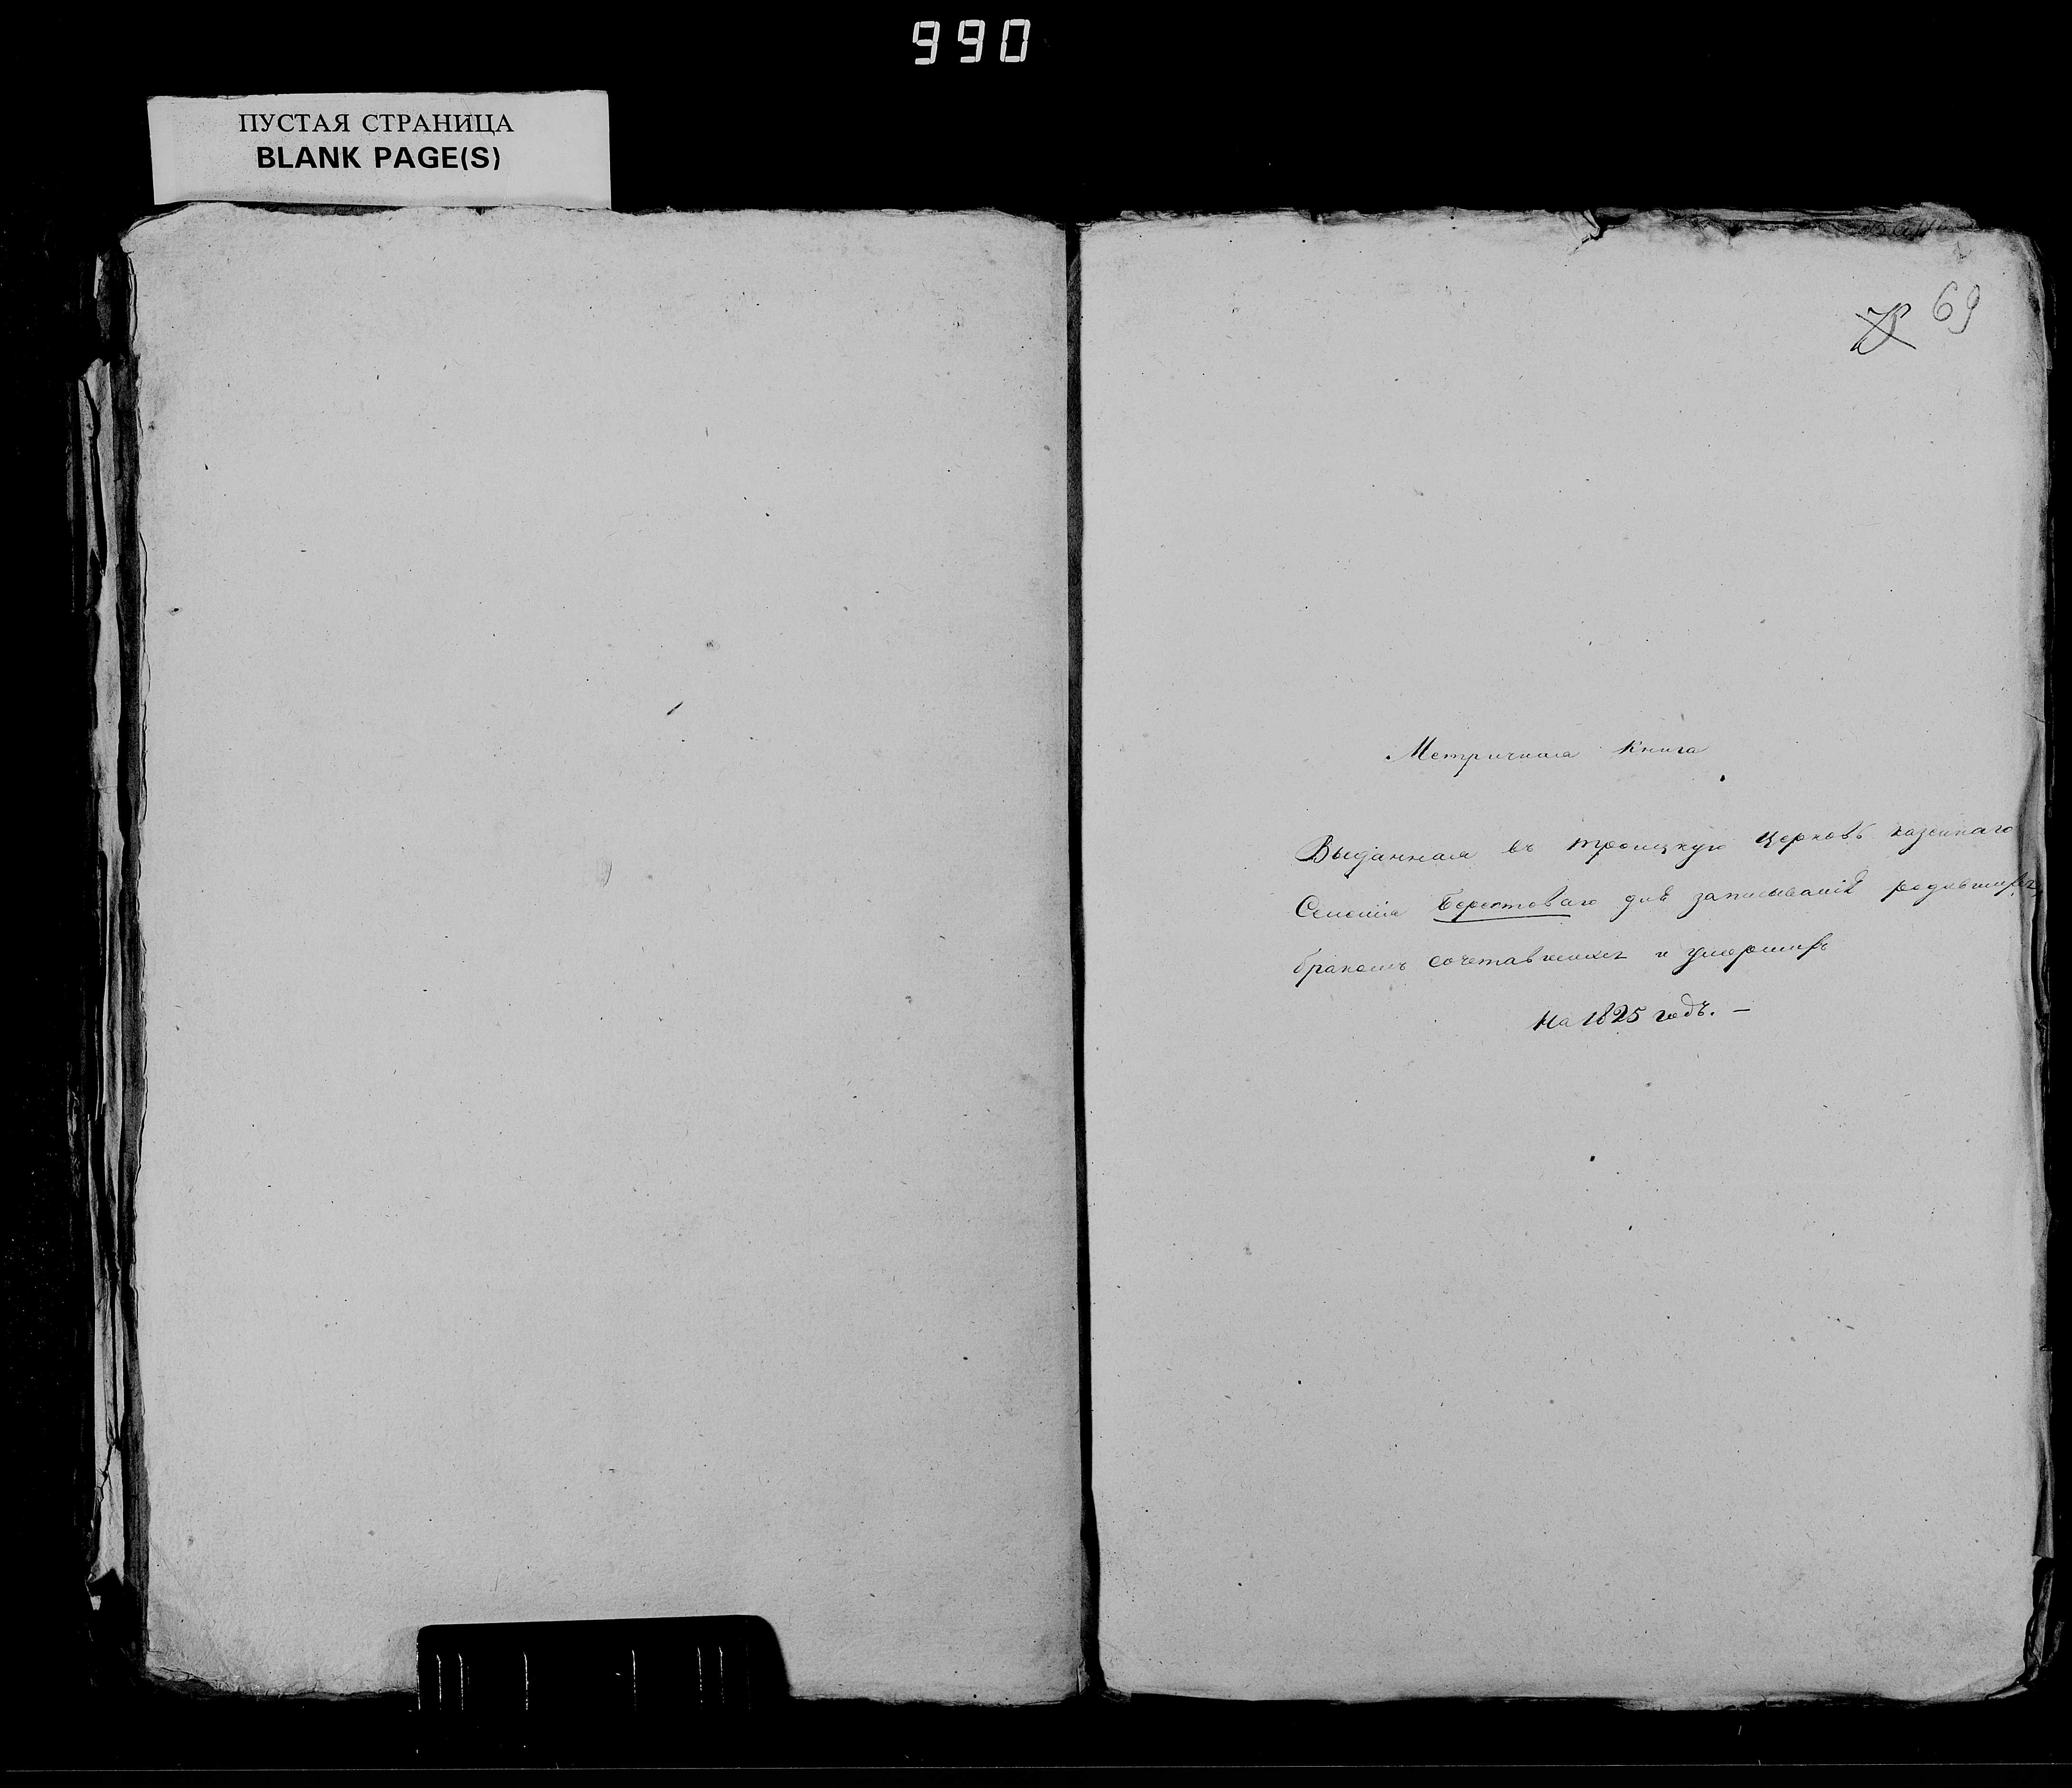 990
ПУСТАЯ СТРАНИЦА
BLANK PAGE(S)
69
Метричная Книга
Выданная въ троицкую церковь казеннаго
Селенія Берестоваго для записыванія родившихся,
бракомъ сочетавшихся и умершихъ
На 1825 годъ. —